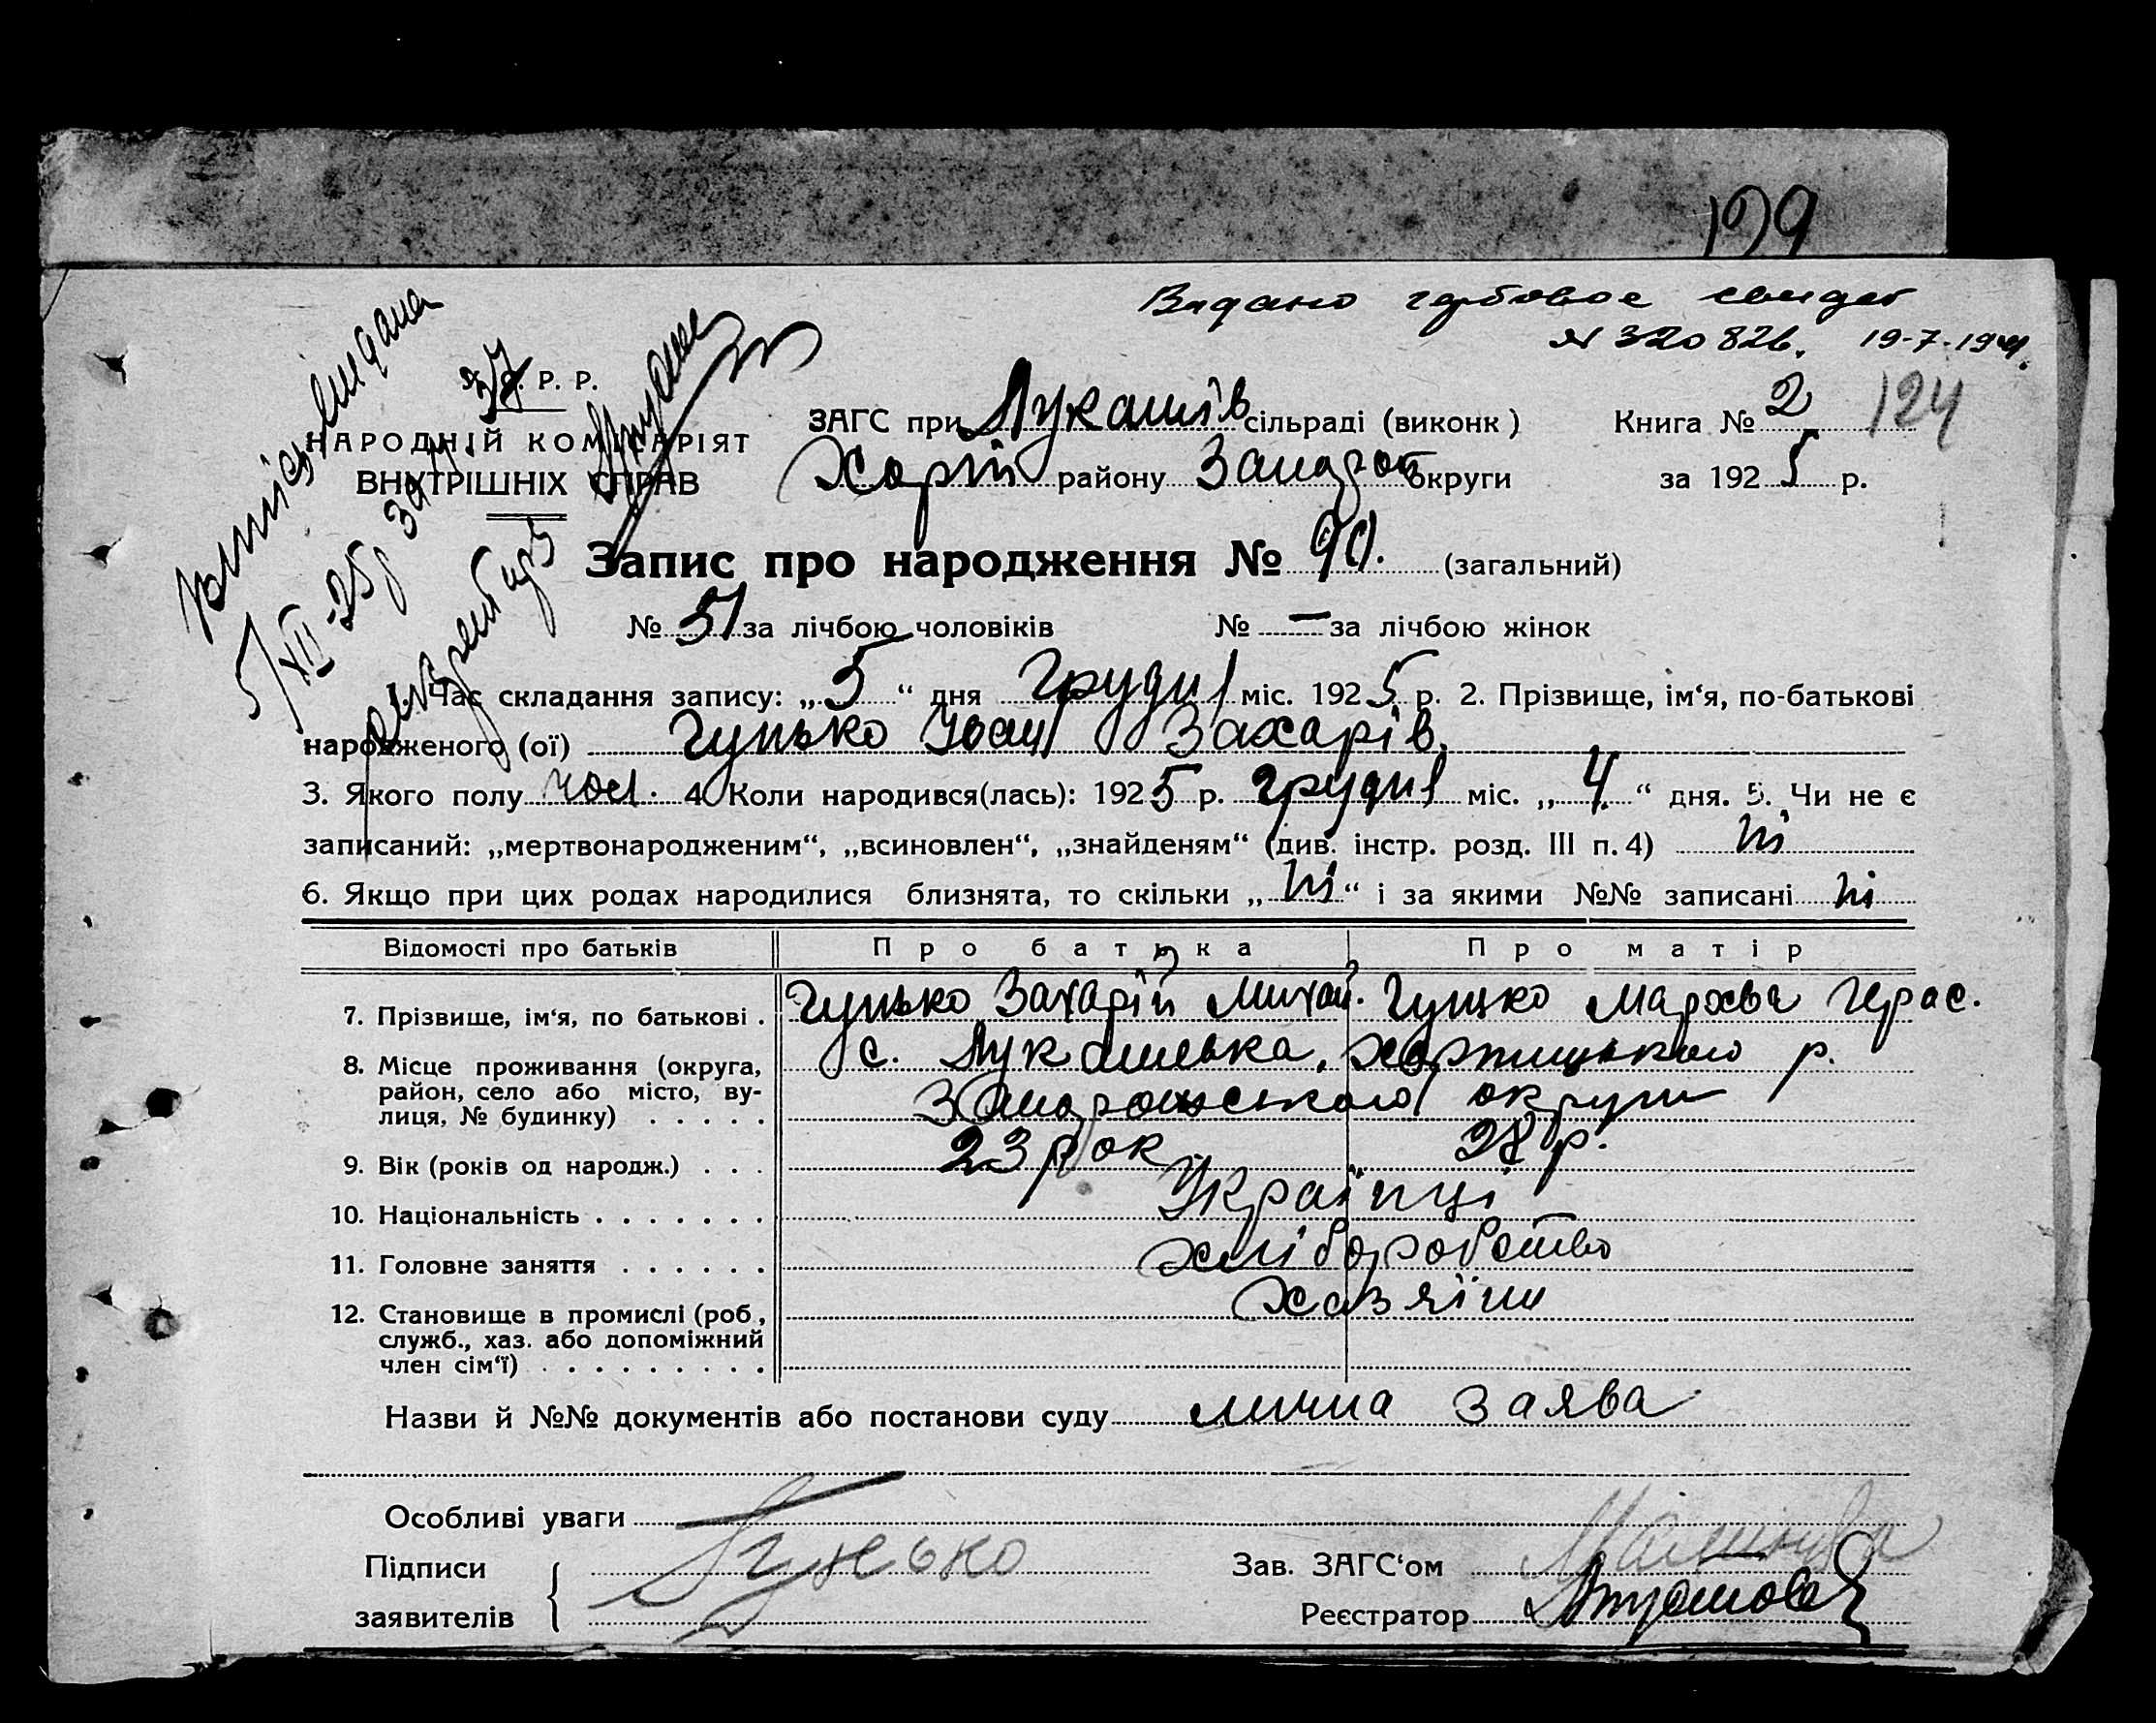 199
Видано гербовое свидет
N 320826. 19-7-1944.
Випіс видана
5/XII-25р за ч. 37
реєстратор
У. С. Р. Р.
НАРОДНІЙ КОМІСАРІЯТ
ВНУТРІШНІХ СПРАВ
ЗАГС при Лукашів сільраді (виконк) Книга № 2 124
Хорти району Запороз округи за 1925 р.
Запис про народження № 90. (загальний)
№ 51 за лічбою чоловіків № — за лічбою жінок
1. Час складання запису: „5“ дня Грудня міс. 1925 р. 2. Прізвище, ім‘я, по-батькові
народженого (ої) Гунько Іван Захарів.
3. Якого полу чол. 4. Коли народився(лась): 1925 р. грудня міс. „4.“ дня. 5. Чи не є
записаний: „мертвонародженим“, „всиновлен“, „знайденям“ (див. інстр. розд. III п. 4) ні
6. Якщо при цих родах народилися близнята, то скільки „ні“ і за якими №№ записані ні
Відомості про батьків Про батька Про матір
7. Прізвище, ім‘я, по батькові . Гунько Захарій Михай. Гунько Мархва Герас.
8. Місце проживання (округа, район, село або місто, вулиця, № будинку) . . . . . с. Лукашівка, Хортицького р.
Запорожського округи
9. Вік (років од народж.) . . . 23 рок 28 р.
10. Національність . . . . . . . Українці
11. Головне заняття . . . . . . хліборобство
12. Становище в промислі (роб., служб., хаз. або допоміжний член сім‘ї) . . . . . . . . . хазяїни
Назви й №№ документів або постанови суду лична заява
Особливі уваги
Підписи заявителів Гунько
Зав. ЗАГС‘ом
Реєстратор